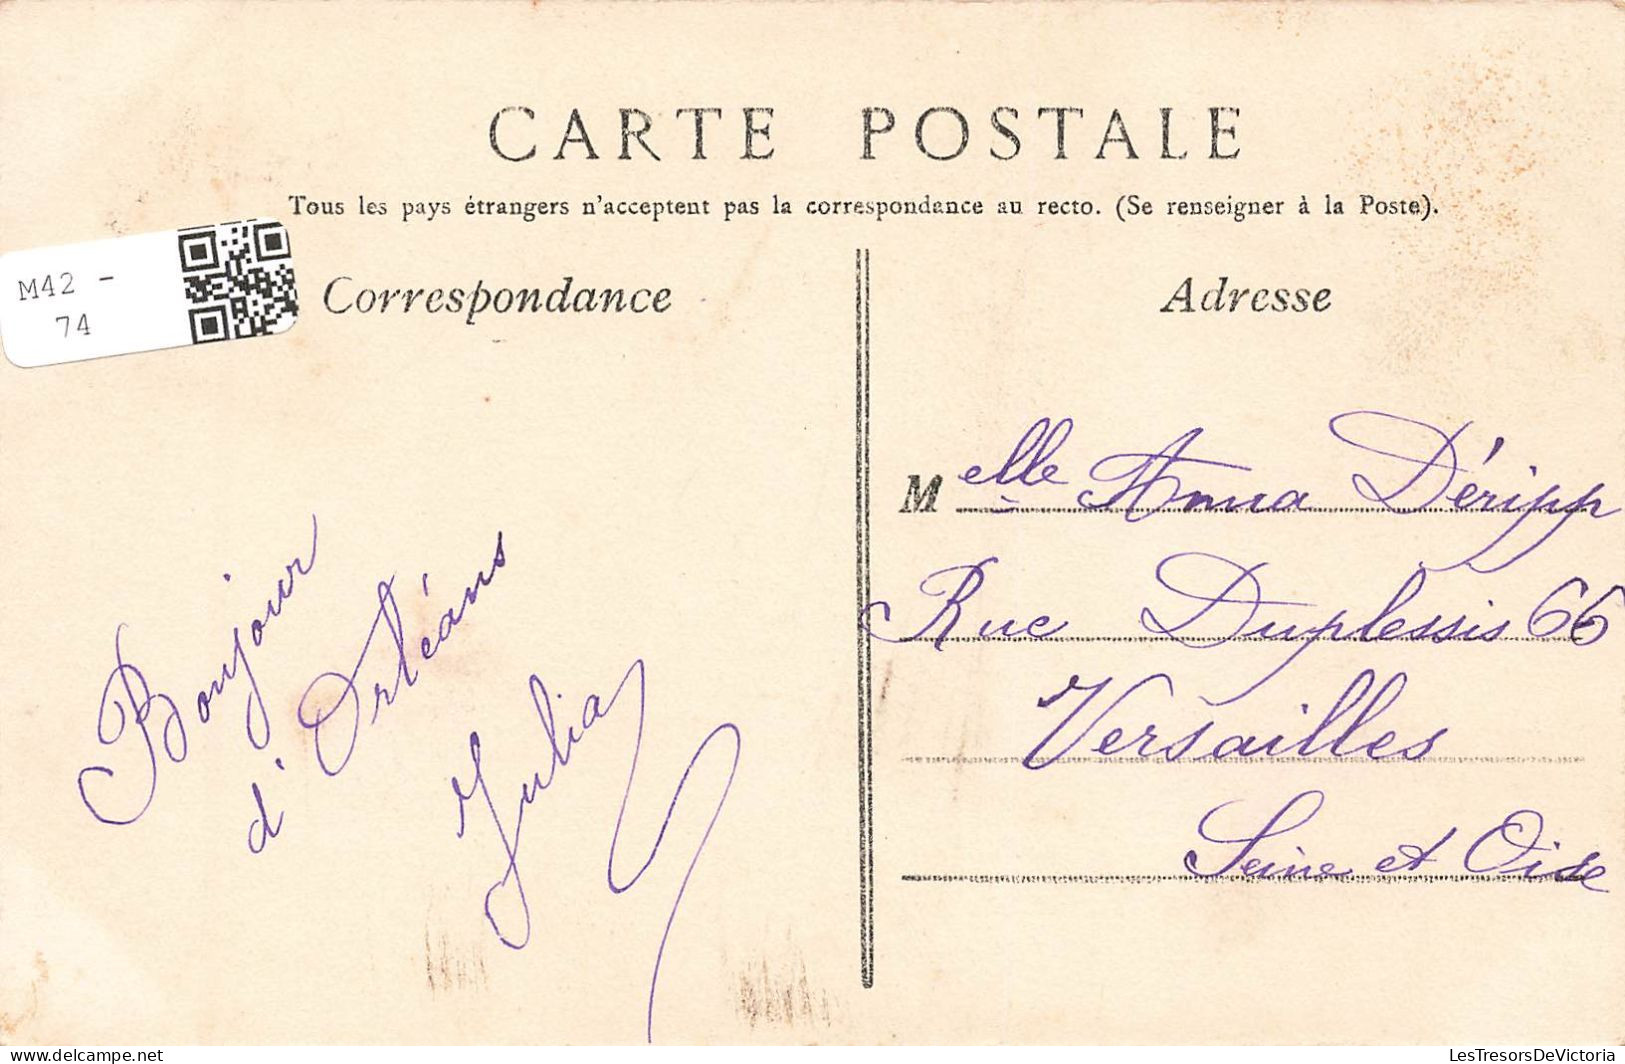 CARTE POSTALE
Tous les pays étrangers n'acceptent pas la correspondance au recto. (Se renseigner à la Poste).
M42 -
74
Correspondance
Bonjour
d'Orléans
Julia
Adresse
Melle Anna Déripp
Rue Duplessis 66
Versailles
Seine et Oise
LesTresorsDeVictoria